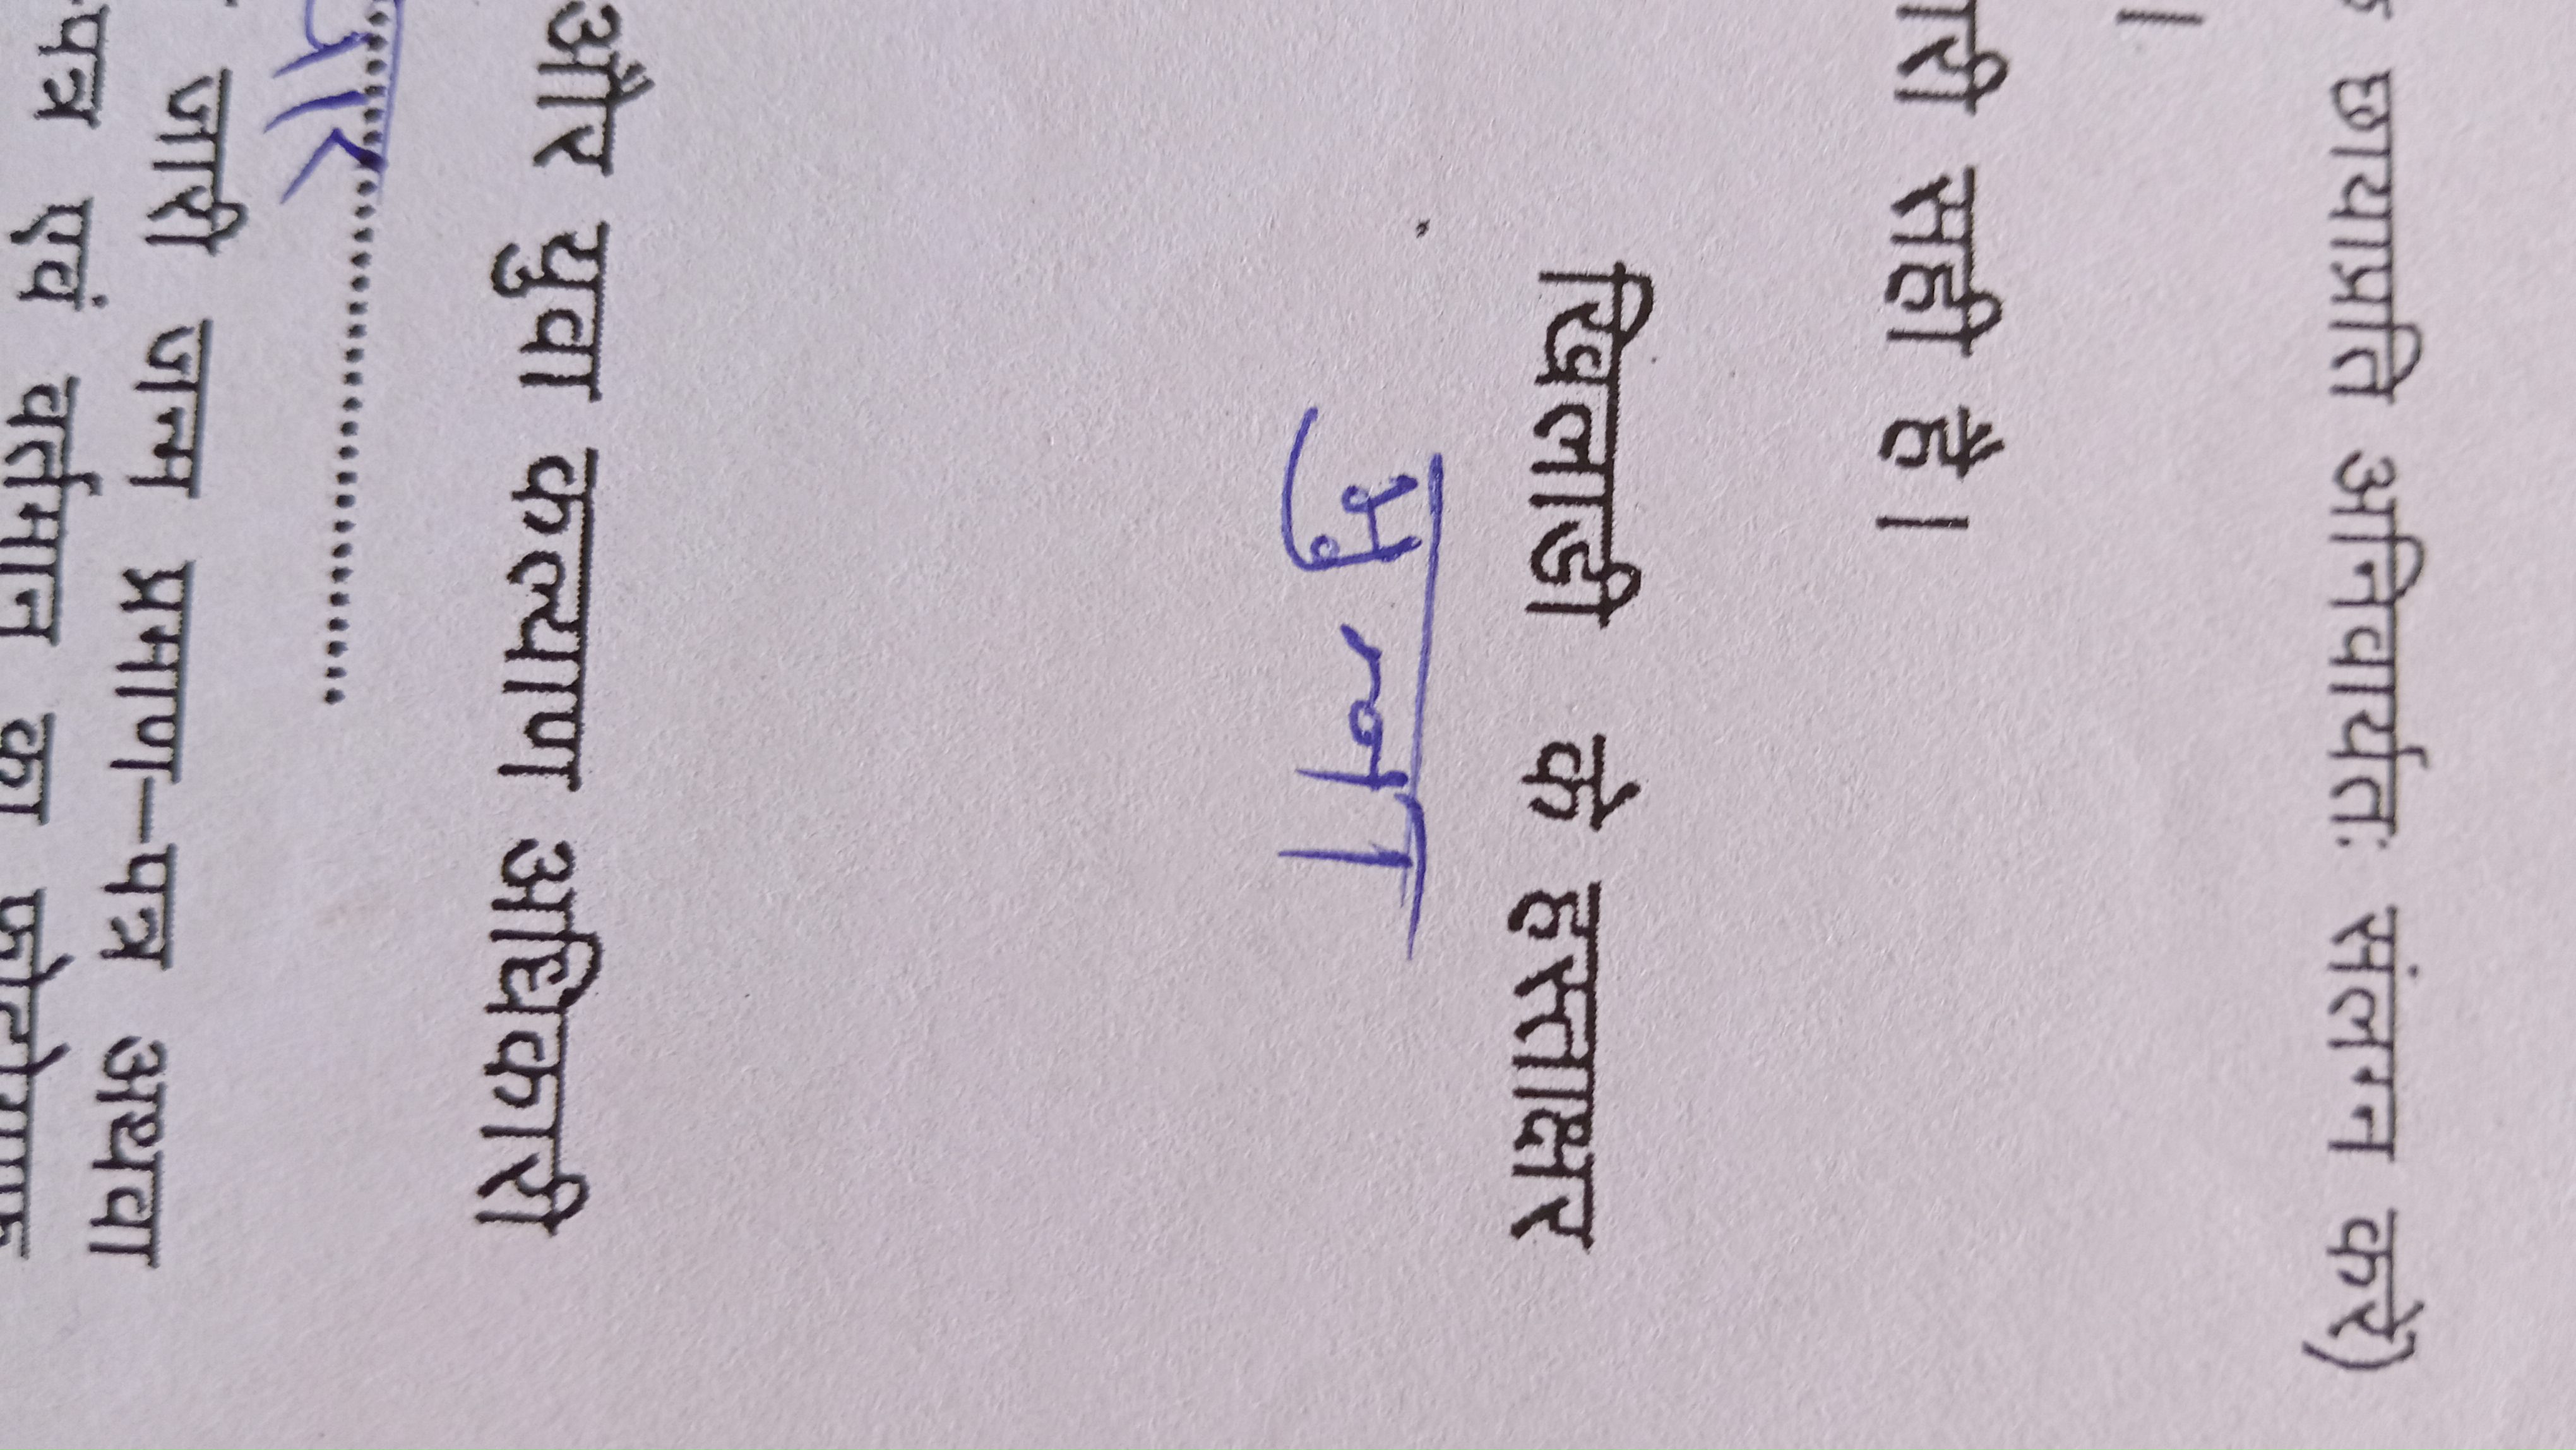 छायाप्रति अनिवार्यतः संलग्न करें)
।
सही है।
खिलाडी के हस्ताक्षर
मुन्ना
और युवा कल्याण अधिकारी
जारी जन्म प्रमाण–पत्र अथवा
-पत्र एवं वर्तमान का